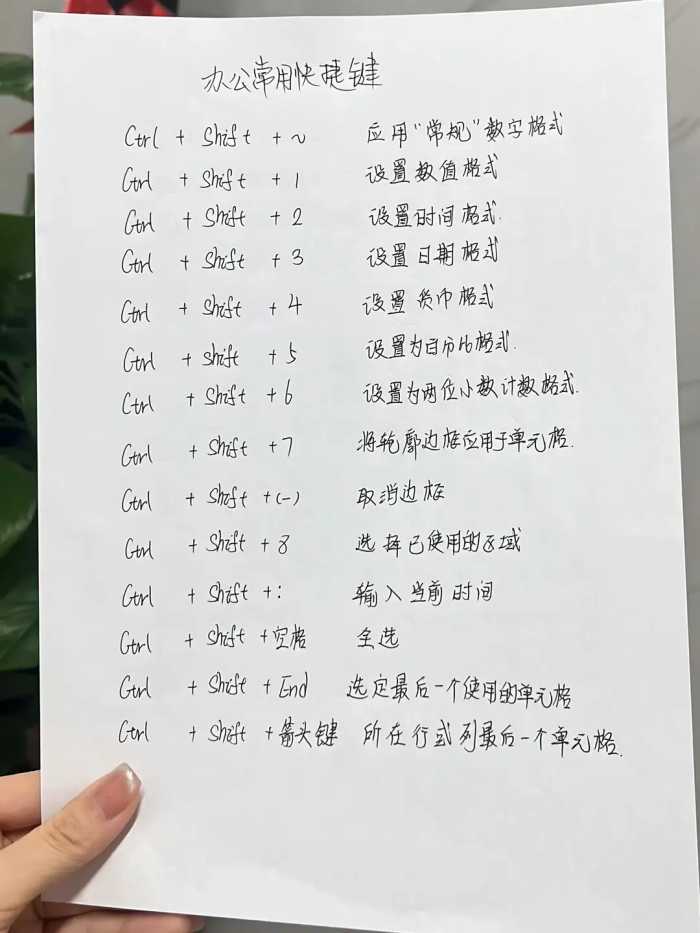 办公常用快捷键
Ctrl + Shift + ~ 应用“常规”数字格式
Ctrl + Shift + 1 设置数值格式
Ctrl + Shift + 2 设置时间格式.
Ctrl + Shift + 3 设置日期格式
Ctrl + Shift + 4 设置货币格式
Ctrl + shift + 5 设置为百分比格式.
Ctrl + Shift + 6 设置为两位小数计数格式.
Ctrl + Shift + 7 将轮廓边框应用于单元格.
Ctrl + Shift + (-) 取消边框
Ctrl + Shift + 8 选择已使用的区域
Ctrl + Shift + : 输入当前时间
Ctrl + Shift + 空格 全选
Ctrl + Shift + End 选定最后一个使用的单元格
Ctrl + Shift + 箭头键 所在行或列最后一个单元格.